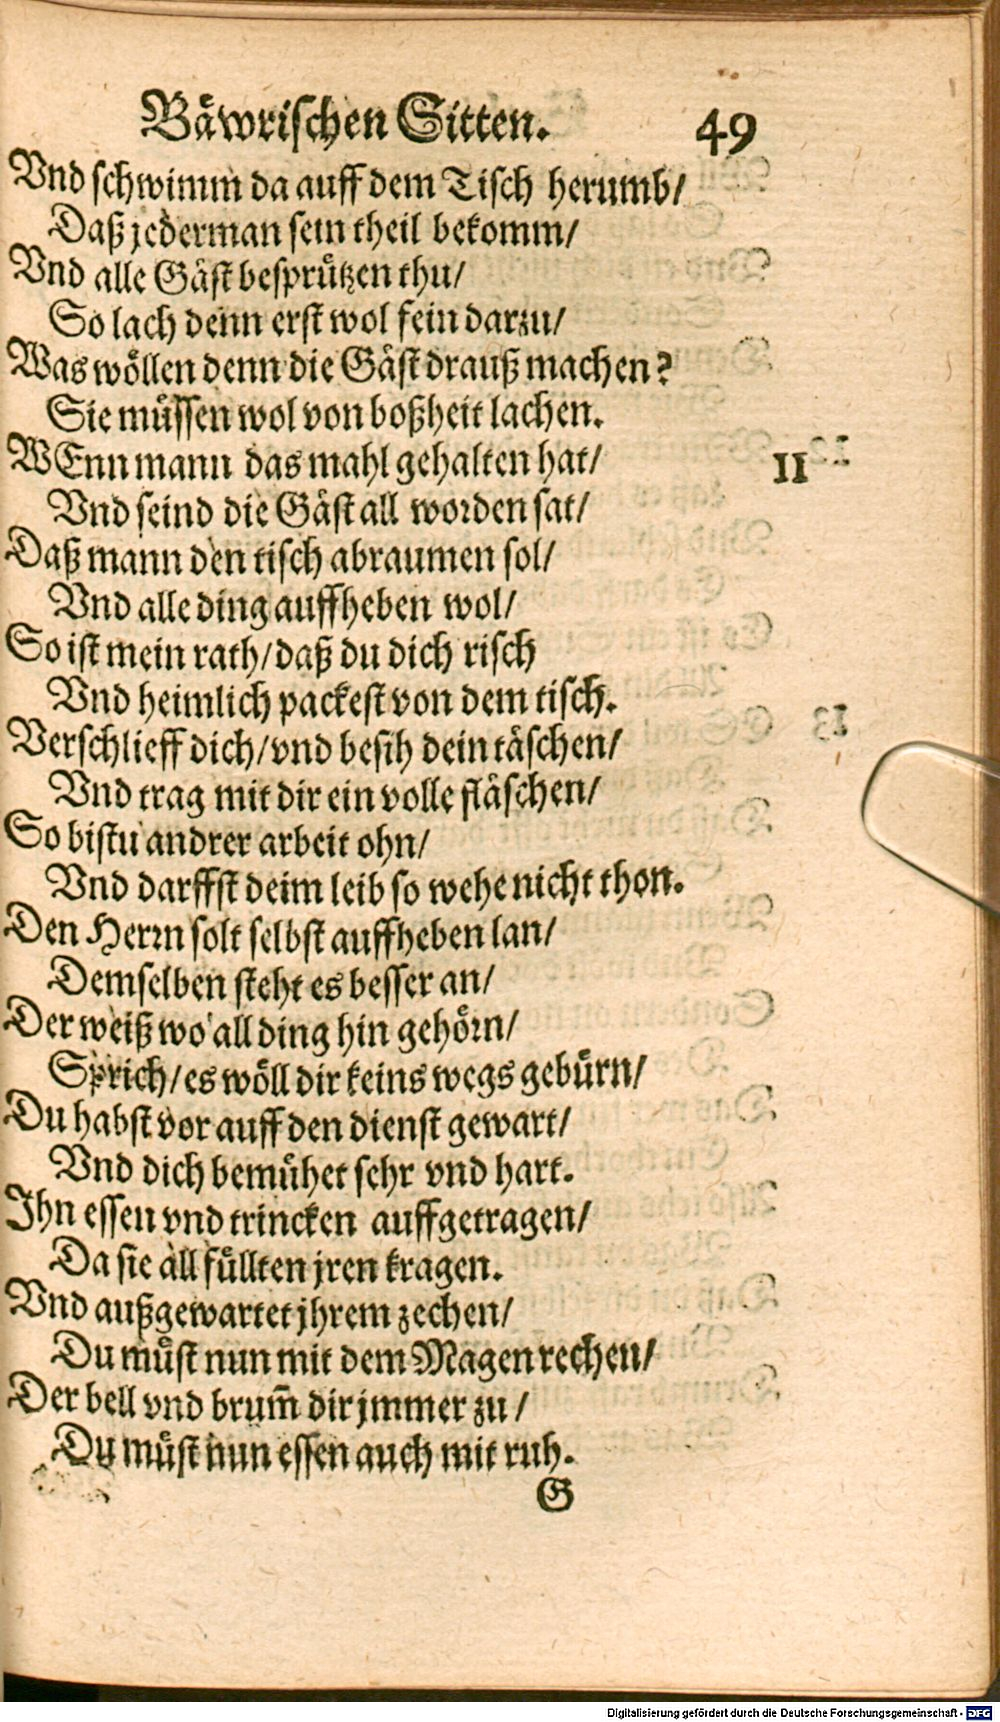 Bäwrischen Sitten. 49
Vnd schwimm da auff dem Tisch herumb/
Daß jederman sein theil bekomm/
Vnd alle Gäst besprützen thu/
So lach denn erst wol fein darzu/
Was wöllen denn die Gäst drauß machen?
Sie müssen wol von boßheit lachen.
WEnn mann das mahl gehalten hat/ 11
Vnd seind die Gäst all worden sat/
Daß mann den tisch abraumen sol/
Vnd alle ding auffheben wol/
So ist mein rath/ daß du dich risch
Vnd heimlich packest von dem tisch.
Verschlieff dich/ vnd besih dein täschen/
Vnd trag mit dir ein volle fläschen/
So bistu andrer arbeit ohn/
Vnd darffst deim leib so wehe nicht thon.
Den Herrn solt selbst auffheben lan/
Demselben steht es besser an/
Der weiß wo all ding hin gehörn/
Sprich/ es wöll dir keins wegs gebürn/
Du habst vor auff den dienst gewart/
Vnd dich bemühet sehr vnd hart.
Ihn essen vnd trincken auffgetragen/
Da sie all füllten jren kragen.
Vnd außgewartet jhrem zechen/
Du müst nun mit dem Magen rechen/
Der bell vnd brum̃ dir jmmer zu/
Du müst nun essen auch mit ruh.
G
Digitalisierung gefördert durch die Deutsche Forschungsgemeinschaft - DFG